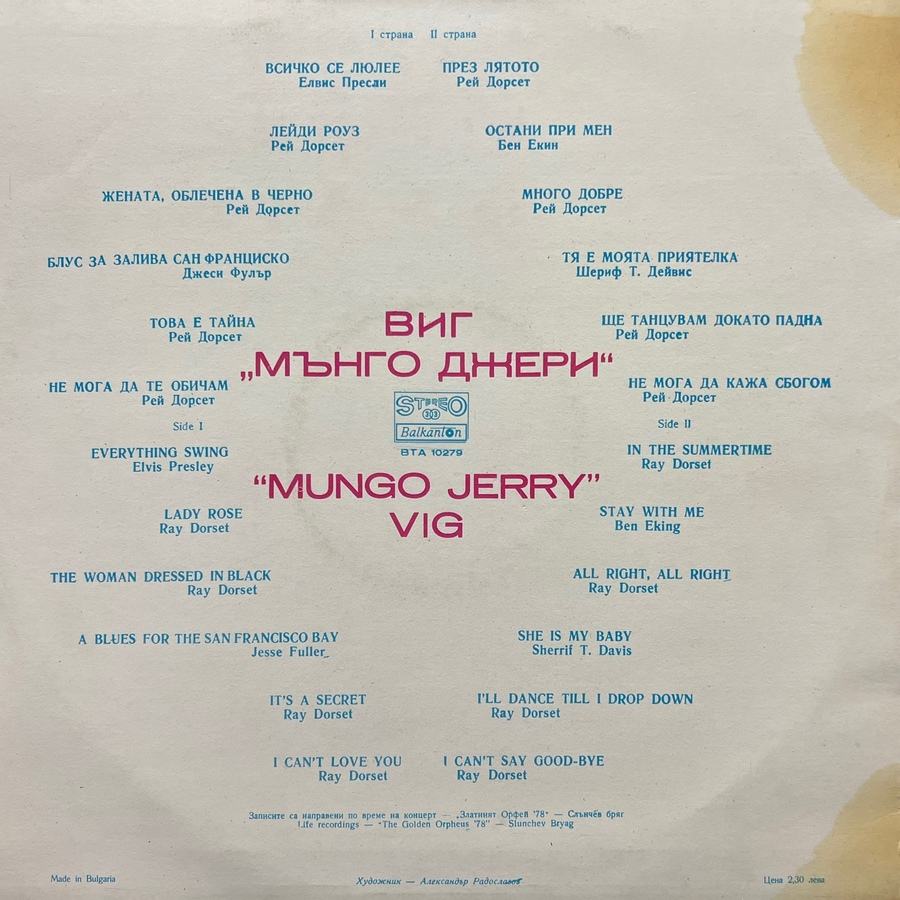 I страна II страна
ВСИЧКО СЕ ЛЮЛЕЕ
Елвис Пресли
ПРЕЗ ЛЯТОТО
Рей Дорсет
ЛЕЙДИ РОУЗ
Рей Дорсет
ОСТАНИ ПРИ МЕН
Бен Екин
ЖЕНАТА, ОБЛЕЧЕНА В ЧЕРНО
Рей Дорсет
МНОГО ДОБРЕ
Рей Дорсет
БЛУС ЗА ЗАЛИВА САН ФРАНЦИСКО
Джеси Фулър
ТЯ Е МОЯТА ПРИЯТЕЛКА
Шериф Т. Дейвис
ТОВА Е ТАЙНА
Рей Дорсет
ЩЕ ТАНЦУВАМ ДОКАТО ПАДНА
Рей Дорсет
НЕ МОГА ДА ТЕ ОБИЧАМ
Рей Дорсет
НЕ МОГА ДА КАЖА СБОГОМ
Рей Дорсет
ВИГ
„МЪНГО ДЖЕРИ“
STEREO
33
Balkanton
ВТА 10279
"MUNGO JERRY"
VIG
Side I
EVERYTHING SWING
Elvis Presley
Side II
IN THE SUMMERTIME
Ray Dorset
LADY ROSE
Ray Dorset
STAY WITH ME
Ben Eking
THE WOMAN DRESSED IN BLACK
Ray Dorset
ALL RIGHT, ALL RIGHT
Ray Dorset
A BLUES FOR THE SAN FRANCISCO BAY
Jesse Fuller
SHE IS MY BABY
Sherrif T. Davis
IT'S A SECRET
Ray Dorset
I'LL DANCE TILL I DROP DOWN
Ray Dorset
I CAN'T LOVE YOU
Ray Dorset
I CAN'T SAY GOOD-BYE
Ray Dorset
Записите са направени по време на концерт — „Златният Орфей '78" — Слънчев бряг
Life recordings — "The Golden Orpheus '78" — Slunchev Bryag
Made in Bulgaria
Художник — Александър Радославов
Цена 2,30 лева